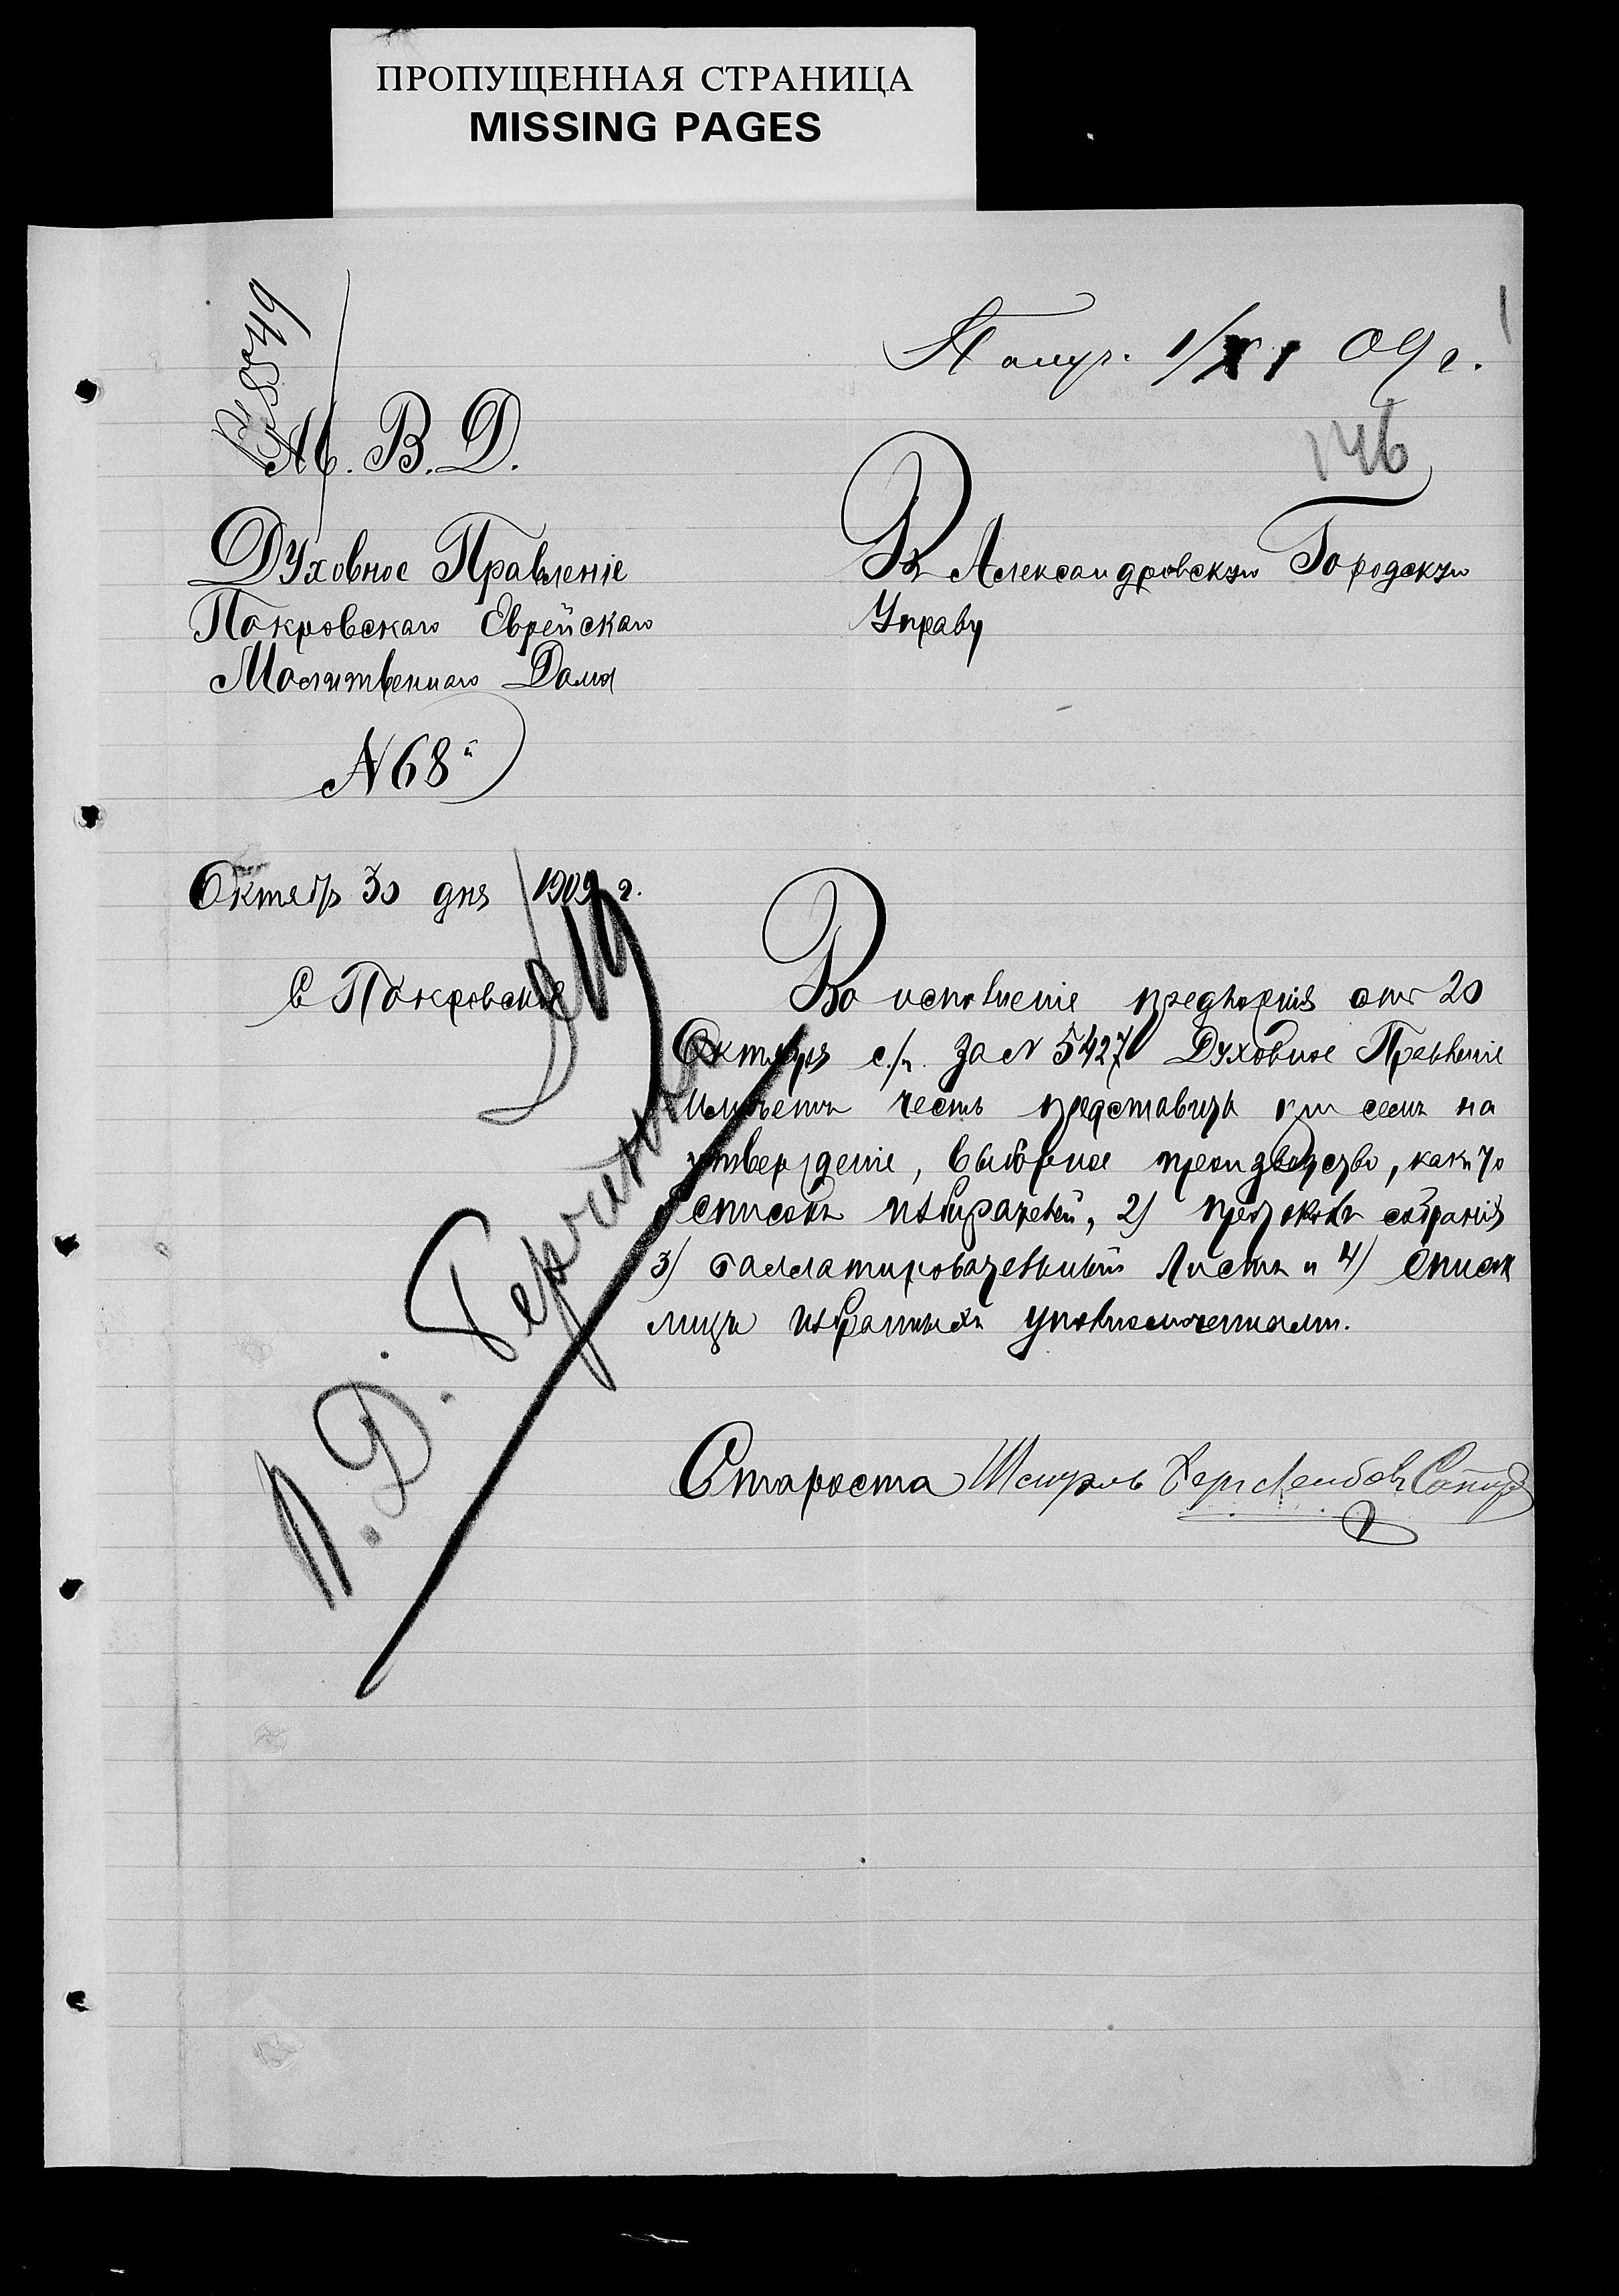 ПРОПУЩЕННАЯ СТРАНИЦА
MISSING PAGES
Получ. 1/XI 09 г.
146
М. В. Д.
Духовное Правленіе
Покровскаго Еврейскаго
Молитвеннаго Дома
N 68й
Октября 30 дня 1909 г.
с Покровское
В Александровскую Городскую
Управу
Во исполненіе предпорнія отъ 20
Октября с/г. за N 5427 Духовное Правленіе
имѣетъ честь представить при семъ на
утвержденіе, выборное производство, какъ то
списокъ избирателей, 2) протоколъ собранія
3) балатировательный Листъ и 4) списк
лицъ избранныхъ уполномоченными.
Староста